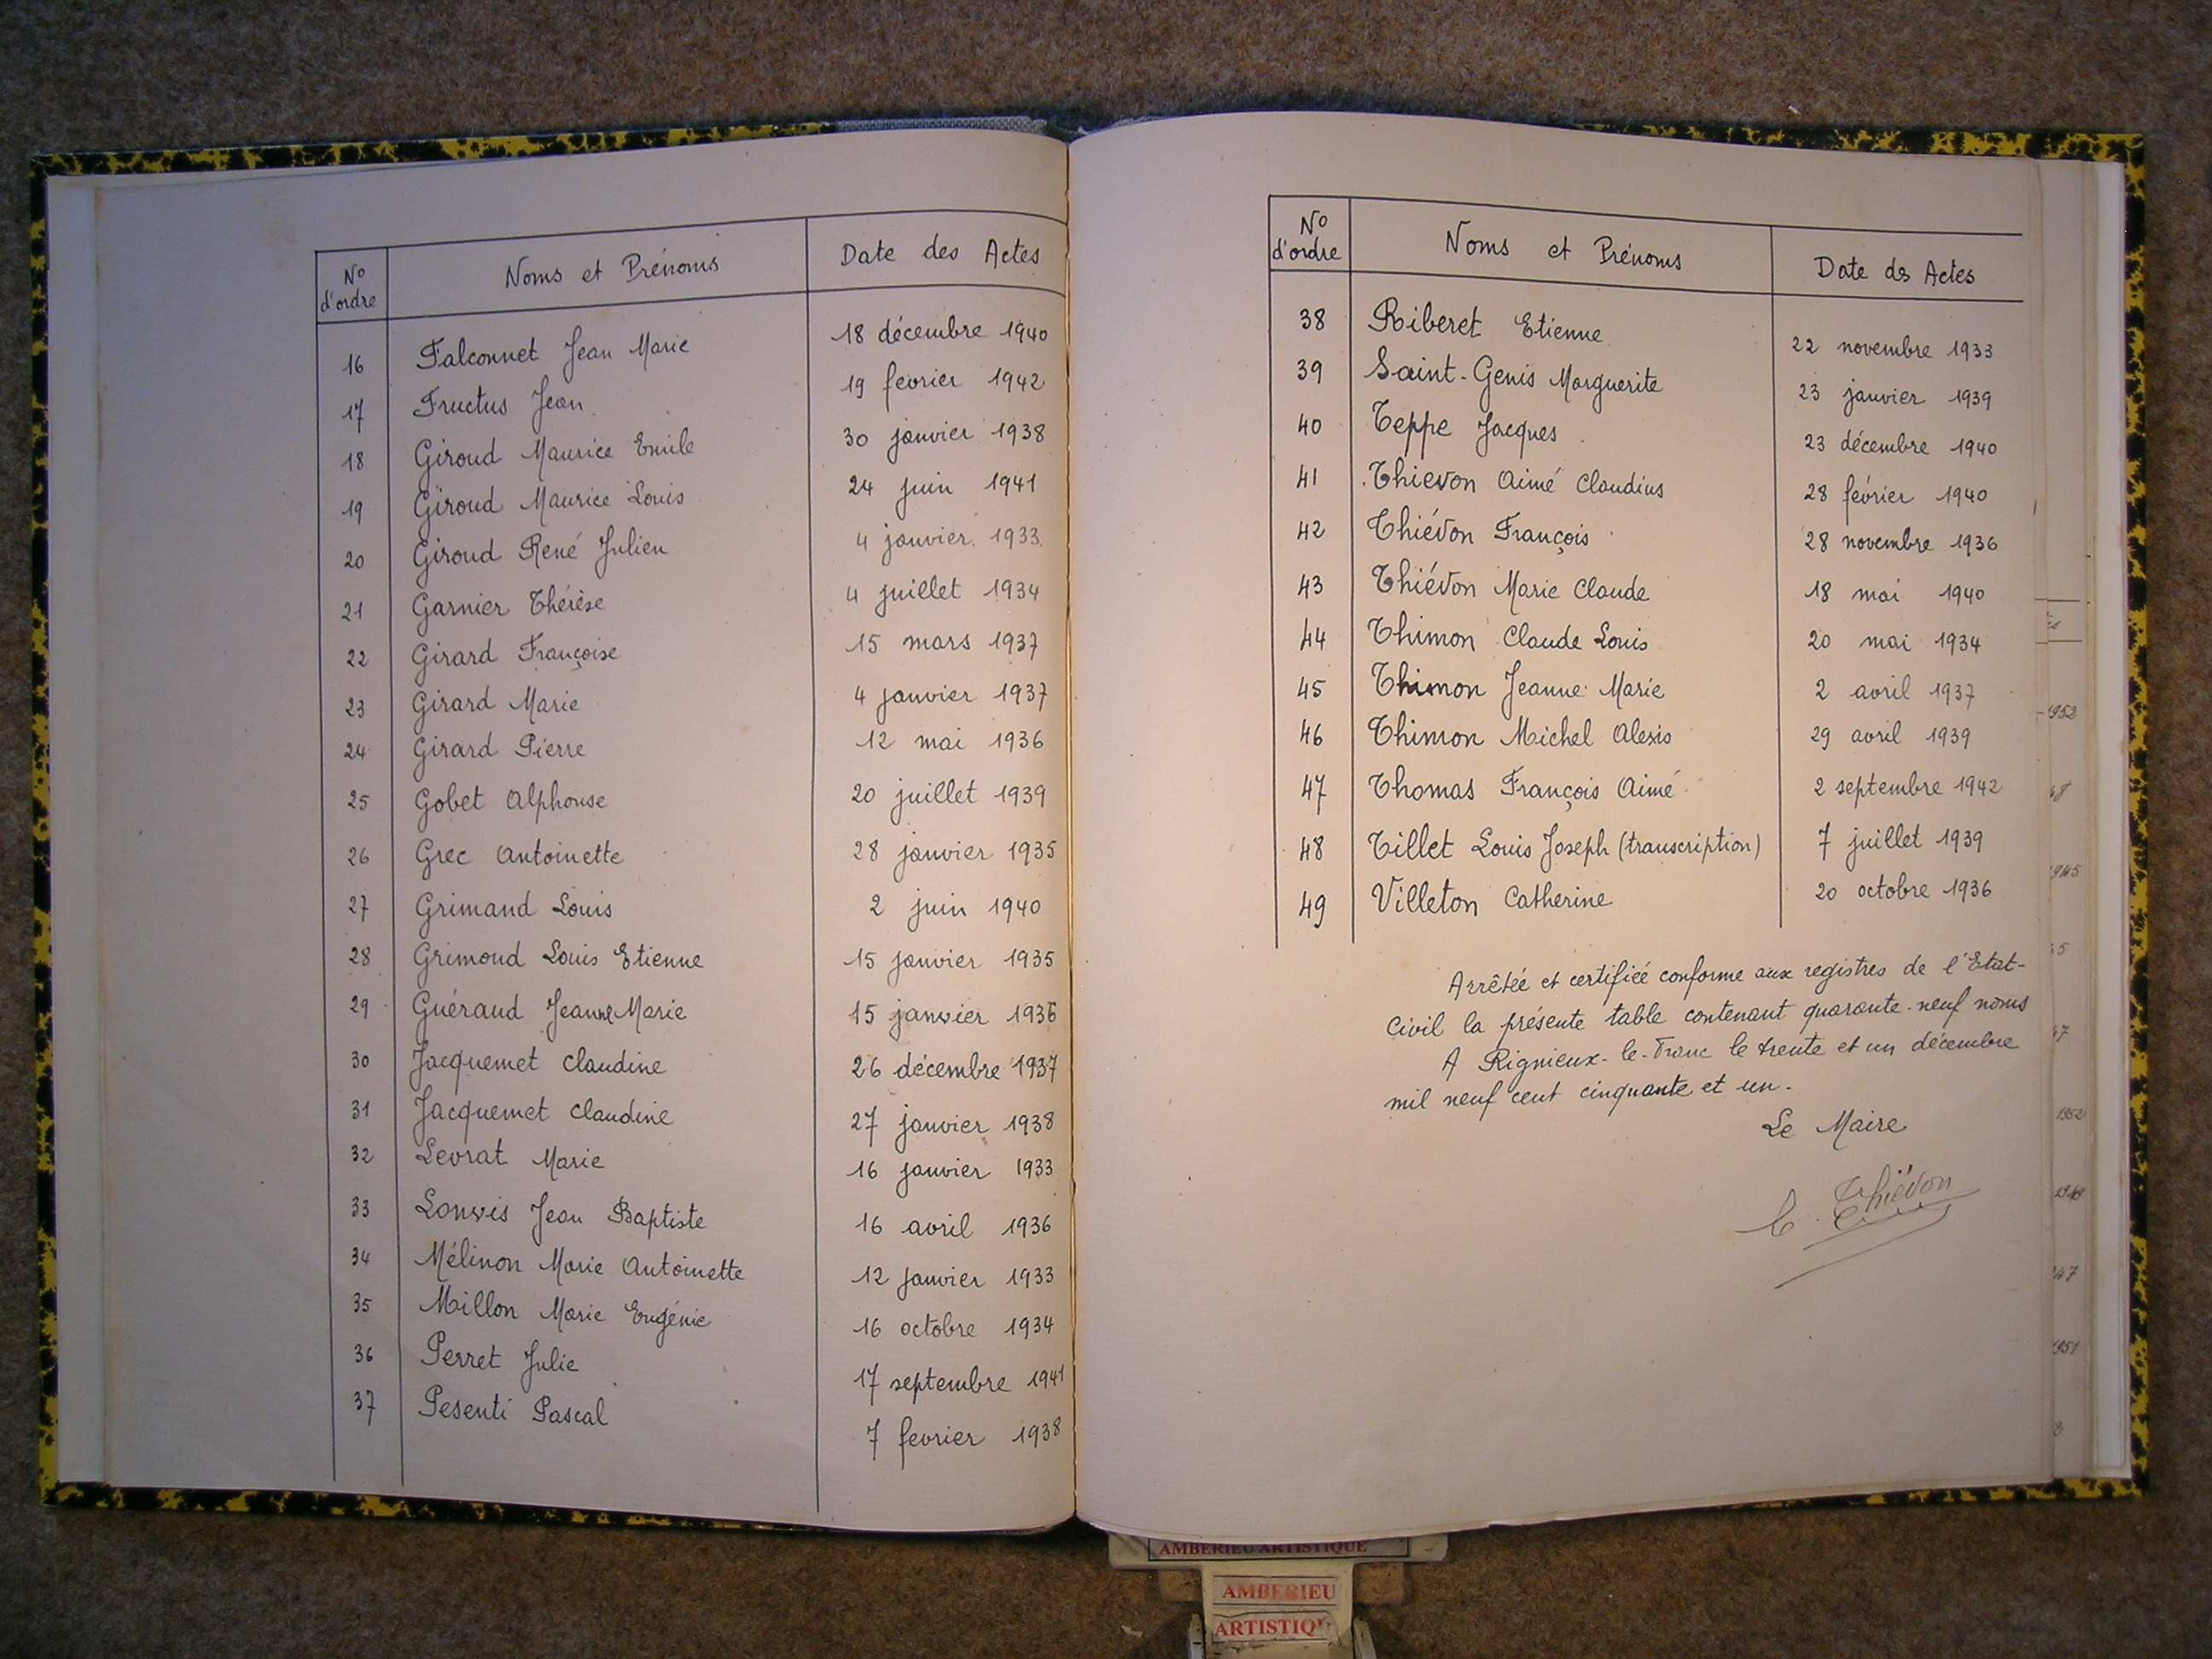 N° d'ordre Noms et Prénoms Date des Actes
16 Falconnet Jean Marie 18 décembre 1940
17 Fructus Jean 19 fevrier 1942
18 Giroud Maurice Emile 30 janvier 1938
19 Giroud Maurice Louis 24 juin 1941
20 Giroud René Julien 4 janvier 1933
21 Garnier Thérèse 4 juillet 1934
22 Girard Françoise 15 mars 1937
23 Girard Marie 4 janvier 1937
24 Girard Pierre 12 mai 1936
25 Gobet Alphonse 20 juillet 1939
26 Grec Antoinette 28 janvier 1935
27 Grimand Louis 2 juin 1940
28 Grimoud Louis Etienne 15 janvier 1935
29 Guéraud Jeanne Marie 15 janvier 1936
30 Jacquemet Claudine 26 décembre 1937
31 Jacquemet Claudine 27 janvier 1938
32 Levrat Marie 16 janvier 1933
33 Lonvis Jean Baptiste 16 avril 1936
34 Mélinon Marie Antoinette 12 janvier 1933
35 Millon Marie Eugénie 16 octobre 1934
36 Perret Julie 17 septembre 1941
37 Pesenti Pascal 7 fevrier 1938
N° d'ordre Noms et Prénoms Date des Actes
38 Riberet Etienne 22 novembre 1933
39 Saint-Genis Marguerite 23 janvier 1939
40 Teppe Jacques 23 décembre 1940
41 Thievon Aimé Claudius 28 février 1940
42 Thiévon François 28 novembre 1936
43 Thiévon Marie Claude 18 mai 1940
44 Thimon Claude Louis 20 mai 1934
45 Thimon Jeanne Marie 2 avril 1937
46 Thimon Michel Alexis 29 avril 1939
47 Thomas François Aimé 2 septembre 1942
48 Tillet Louis Joseph (transcription) 7 juillet 1939
49 Villeton Catherine 20 octobre 1936
Arrêtée et certifiée conforme aux registres de l'Etat-
Civil la présente table contenant quarante-neuf noms
A Rignieux-le-Franc le trente et un décembre
mil neuf cent cinquante et un.
Le Maire
Thiévon
1952
1952
1951
AMBERIEU ARTISTIQUE
AMBERIEU